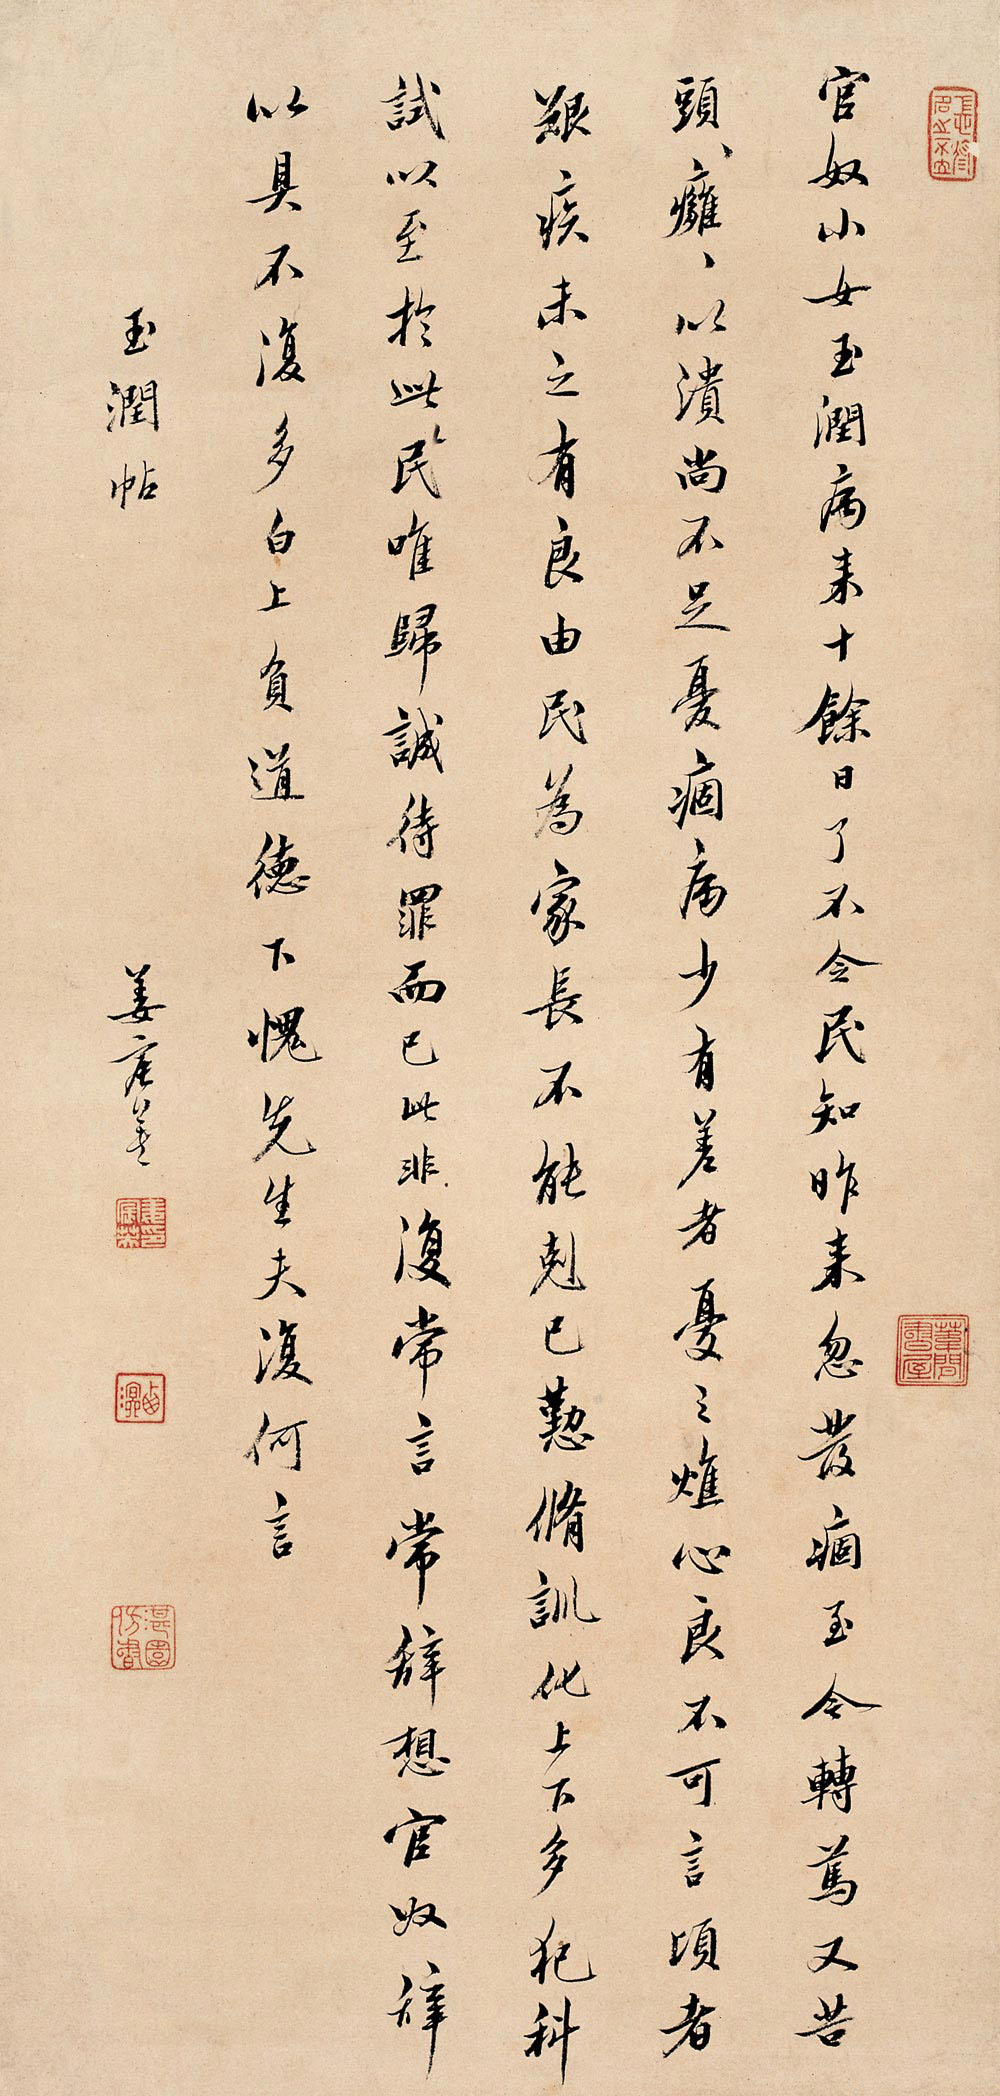 官奴小女玉潤病来十餘日了不令民知昨来忽發痼至今轉篤又苦
頭癰、以潰尚不足憂痼病少有差者憂之燋心良不可言頃者
艱疾未之有良由民為家長不能剋已懃脩訓化上下多犯科
試以至於此民唯歸誠待罪而已此非復常言常辞想官奴辞
以具不復多白上負道德下愧先生夫復何言
玉潤帖
姜宸英
葦間書屋
湛園